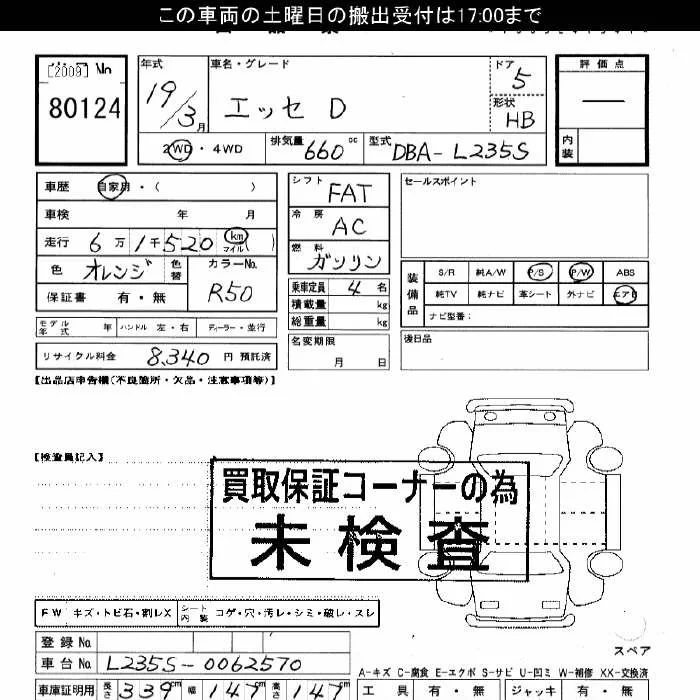 この車両の土曜日の搬出受付は17:00まで
[2009] No
80124
年式
19/3月
車名・グレード
エッセ D
ドア
5
形状
HB
評価点
—
内装
2WD・4WD
排気量 660cc
型式 DBA-L235S
車歴 自家用・( )
車検 年 月
走行 6万1千520 km マイル( )
色 オレンジ 色替
カラーNo. R50
保証書 有・無
モデル年式 年 ハンドル 左・右 ディーラー・並行
リサイクル料金 8,340 円 預託済
シフト FAT
冷房 AC
燃料 ガソリン
乗車定員 4 名
積載量 kg
総重量 kg
名変期限
月 日
セールスポイント
装備品
S/R 純A/W P/S P/W ABS
純TV 純ナビ 革シート 外ナビ エアB
ナビ型番:
後日品
【出品店申告欄(不良箇所・欠品・注意事項等)】
【検査員記入】
買取保証コーナーの為
未検査
FW キズ・トビ石・割レX
シート内装 コゲ・穴・汚レ・シミ・破レ・スレ
登録No.
車台No. L235S-0062570
車庫証明用 長さ 339cm 幅 147cm 高さ 147cm
スペア
A-キズ C-腐食 E-エクボ S-サビ U-凹ミ W-補修 XX-交換済
工具 有・無 ジャッキ 有・無